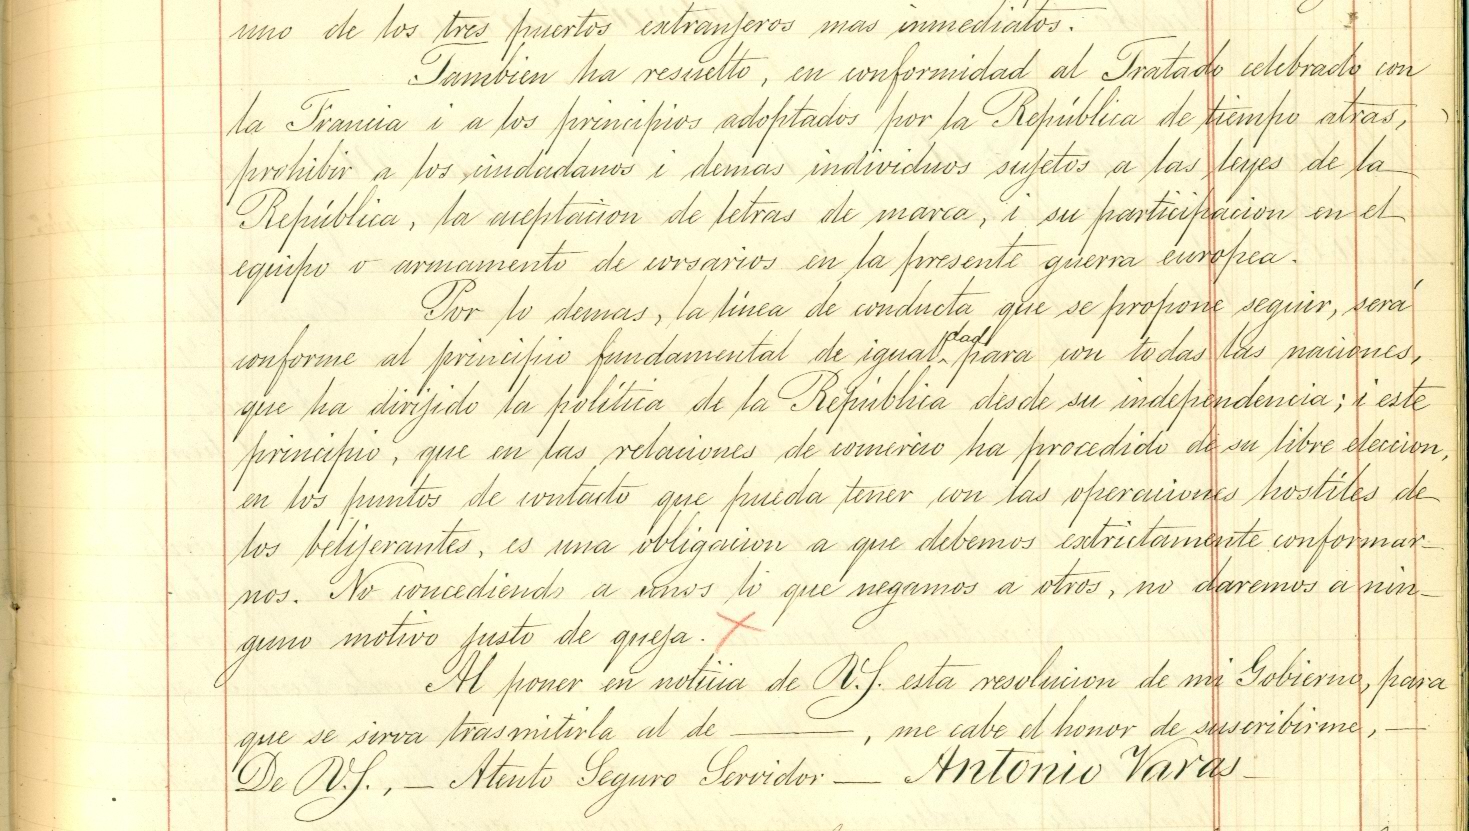 uno de los tres puertos extranjeros mas inmediatos.
Tambien ha resuelto, en conformidad al Tratado celebrado con
la Francia i a los principios adoptados por la República de tiempo atras,
prohibir a los ciudadanos i demas individuos sujetos a las leyes de la
República, la aceptacion de letras de marca, i su participacion en el
equipo o armamento de corsarios en la presente guerra europea.
Por lo demas, la línea de conducta que se propone seguir, será
conforme al principio fundamental de igualdad para con todas las naciones,
que ha dirijido la política de la República desde su independencia; i este
principio, que en las relaciones de comercio ha procedido de su libre eleccion,
en los puntos de contacto que pueda tener con las operaciones hostíles de
los belijerantes, es una obligacion a que debemos extrictamente conformar-
nos. No concediendo a unos lo que negamos a otros, no daremos a nin-
guno motivo justo de queja.
Al poner en noticia de V.S. esta resolucion de mi Gobierno, para
que se sirva trasmitirla al de ———, me cabe el honor de suscribirme, —
De V.S., — Atento Seguro Servidor — Antonio Varas —